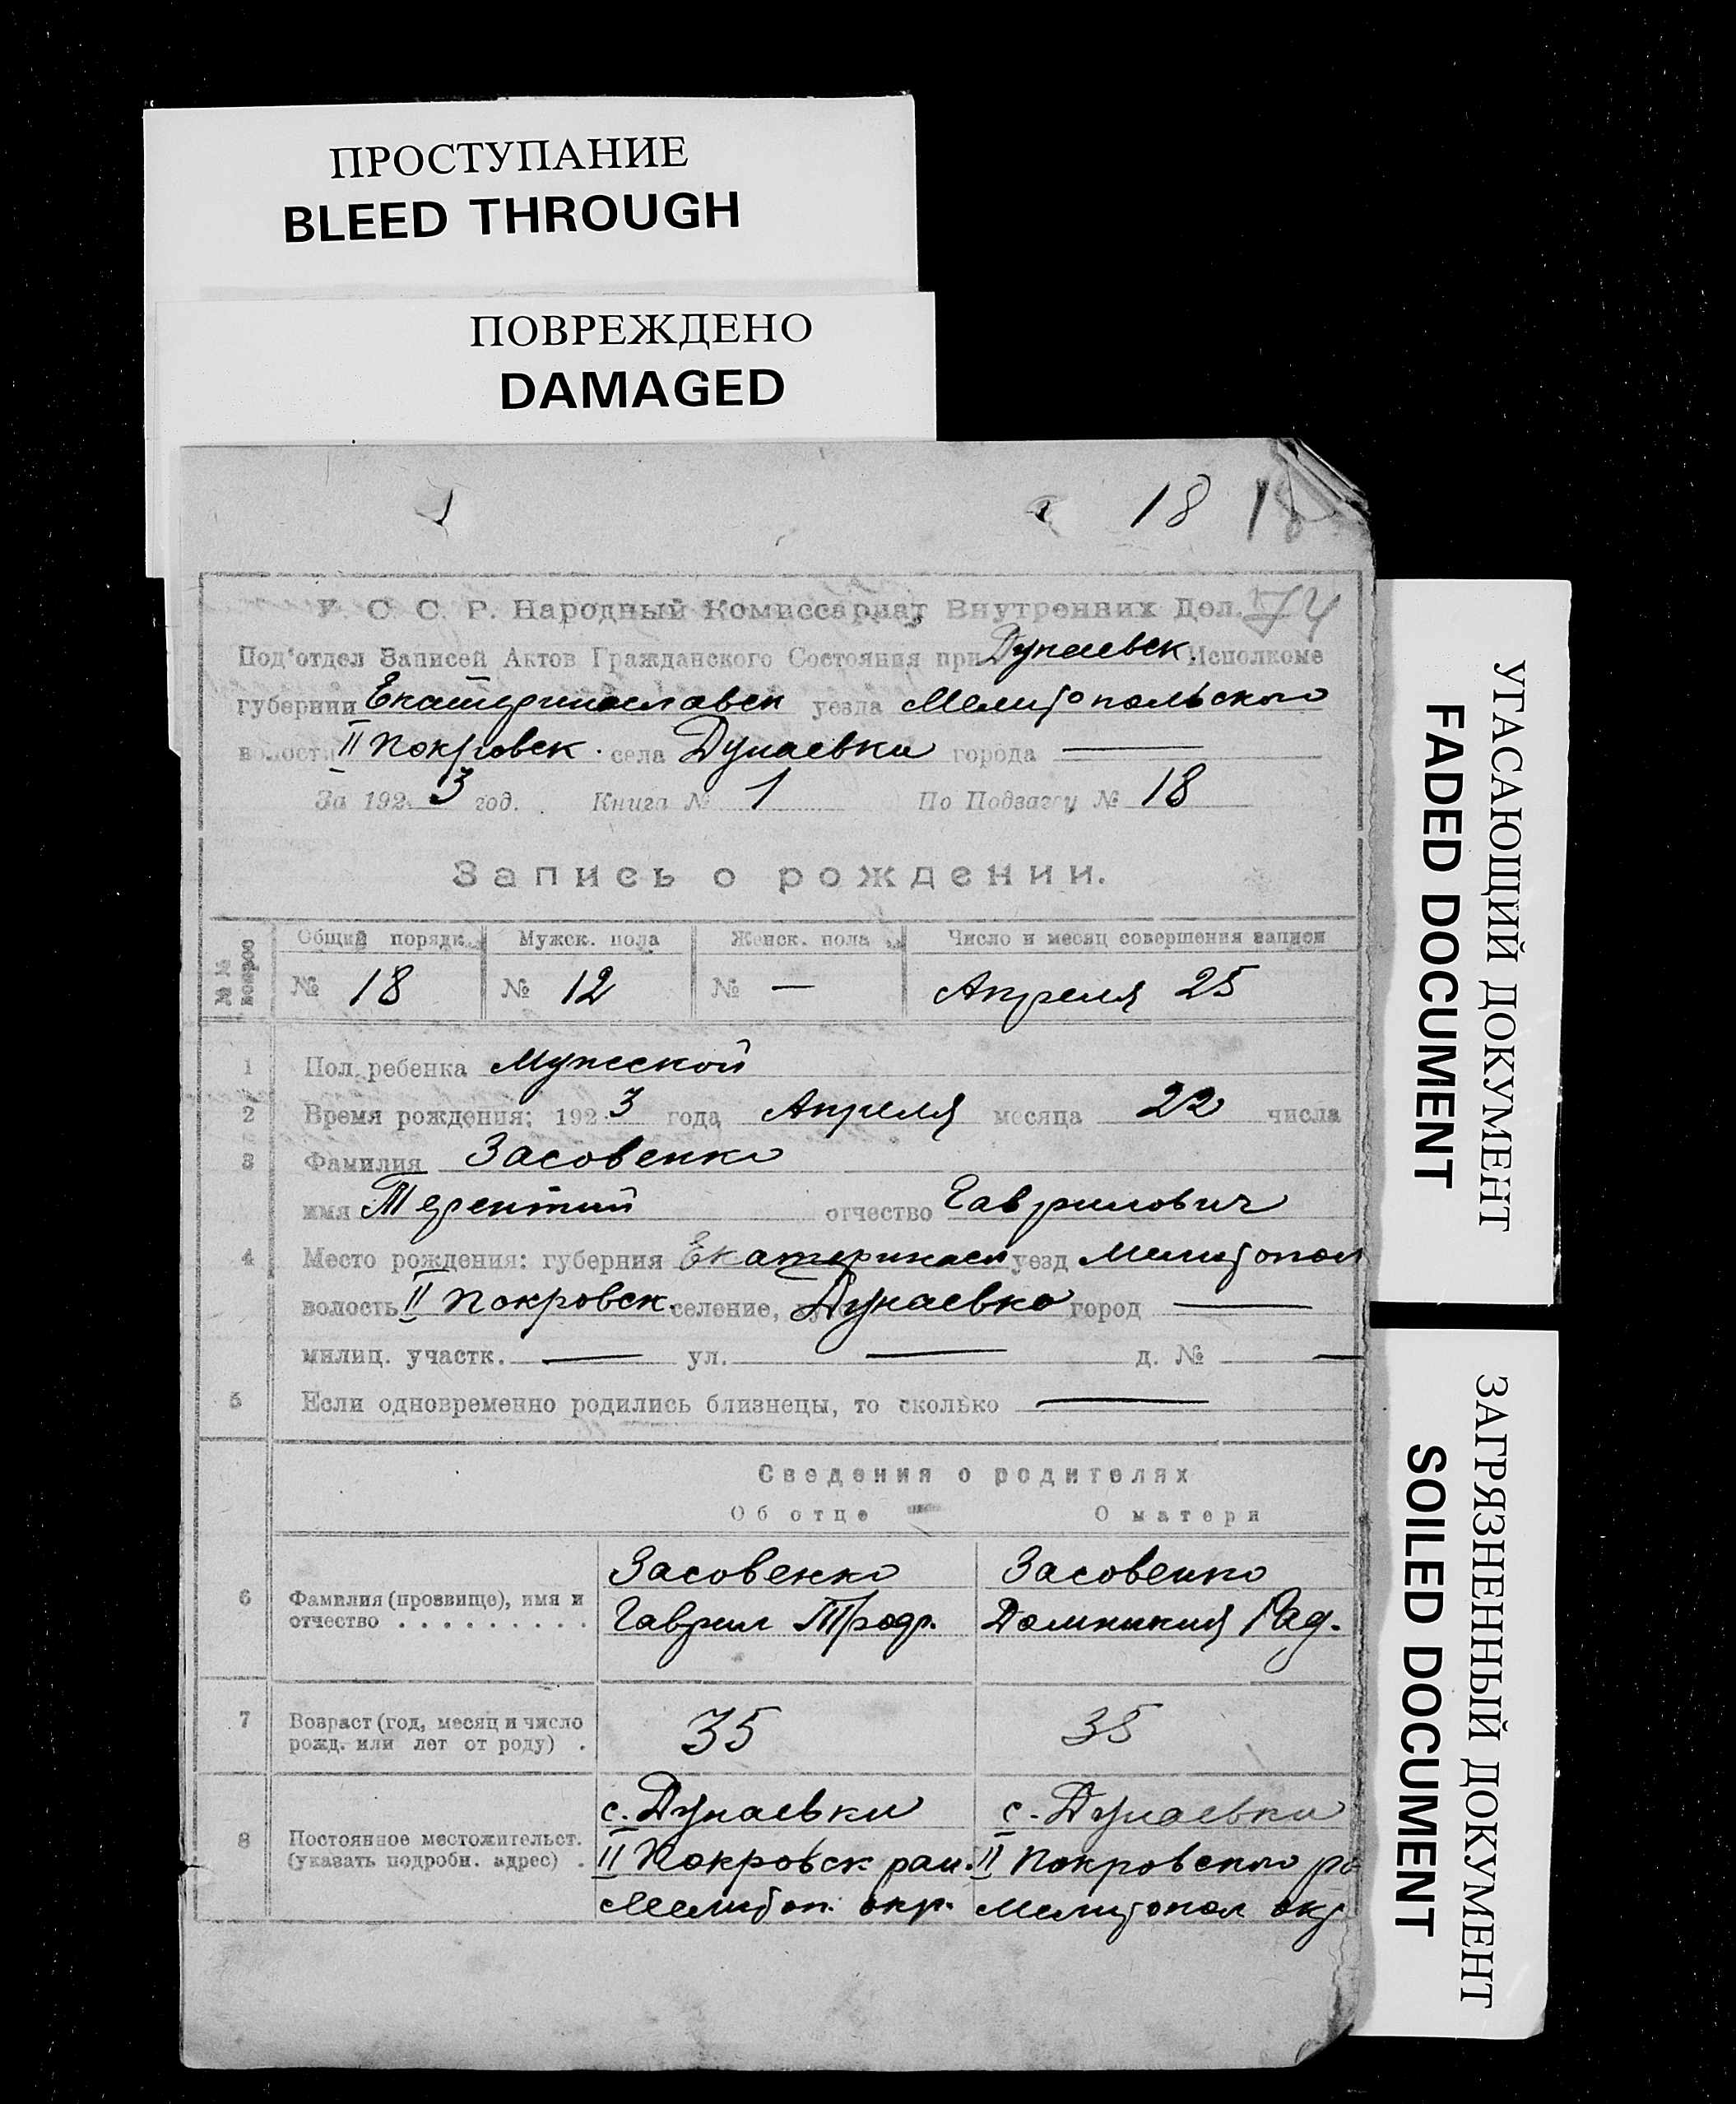 ПРОСТУПАНИЕ
BLEED THROUGH
ПОВРЕЖДЕНО
DAMAGED
18 18
У. С. С. Р. Народный Комиссариат Внутренних Дел. 74
Под'отдел Записей Актов Гражданского Состояния при Дунаевск Исполкоме
губернии Екатеринославск уезда Мелитопольского
волости II Покровск. села Дунаевки города —
За 1923 год. Книга № 1 По Подзагсу № 18
Запись о рождении.
№№ вопрос
Общий порядк. Мужск. пола Женск. пола Число и месяц совершения записи
№ 18 № 12 № — Апреля 25
1 Пол ребенка Мужской
2 Время рождения: 1923 года Апреля месяца 22 числа
3 Фамилия Засовенко
имя Терентий отчество Гаврилович
4 Место рождения: губерния Екатеринасл уезд Мелитопол
волость II Покровск. селение, Дунаевка город —
милиц. участк. — ул. — д. № —
5 Если одновременно родились близнецы, то сколько —
Сведения о родителях
Об отце О матери
6 Фамилия (прозвище), имя и отчество . . . . . . . . .
Засовенко Засовенко
Гаврил Трофр. Домникия Рад.
7 Возраст (год, месяц и число рожд. или лет от роду) .
35 35
8 Постоянное местожительст. (указать подробн. адрес) .
с. Дунаевки с. Дунаевки
II Покровск раи. II Покровского ра
Мелитоп. окр. Мелитопол окр
УГАСАЮЩИЙ ДОКУМЕНТ
FADED DOCUMENT
ЗАГРЯЗНЕННЫЙ ДОКУМЕНТ
SOILED DOCUMENT